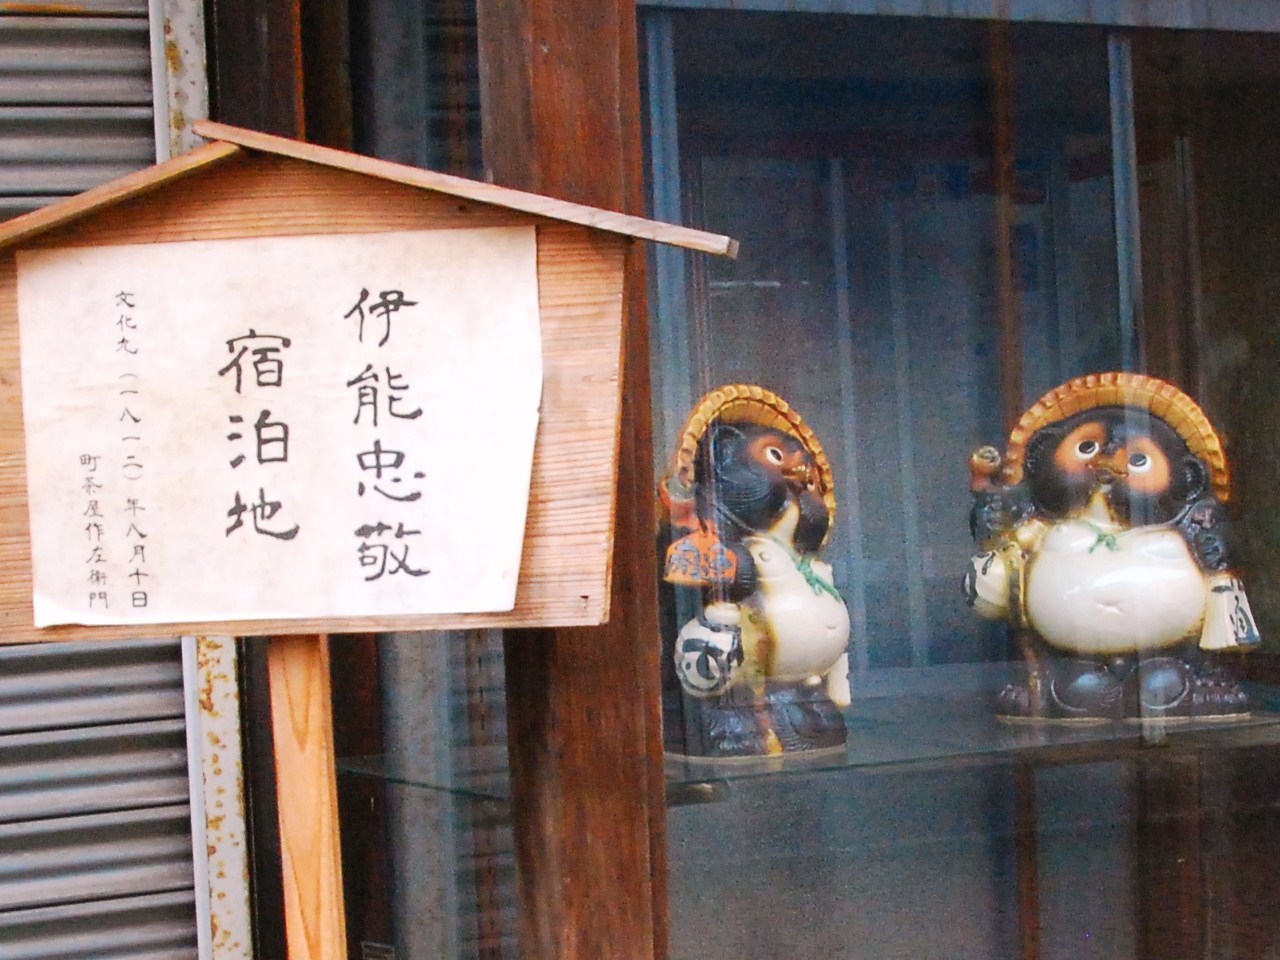 伊能忠敬
宿泊地
文化九(一八一二)年八月十日
町茶屋作左衛門